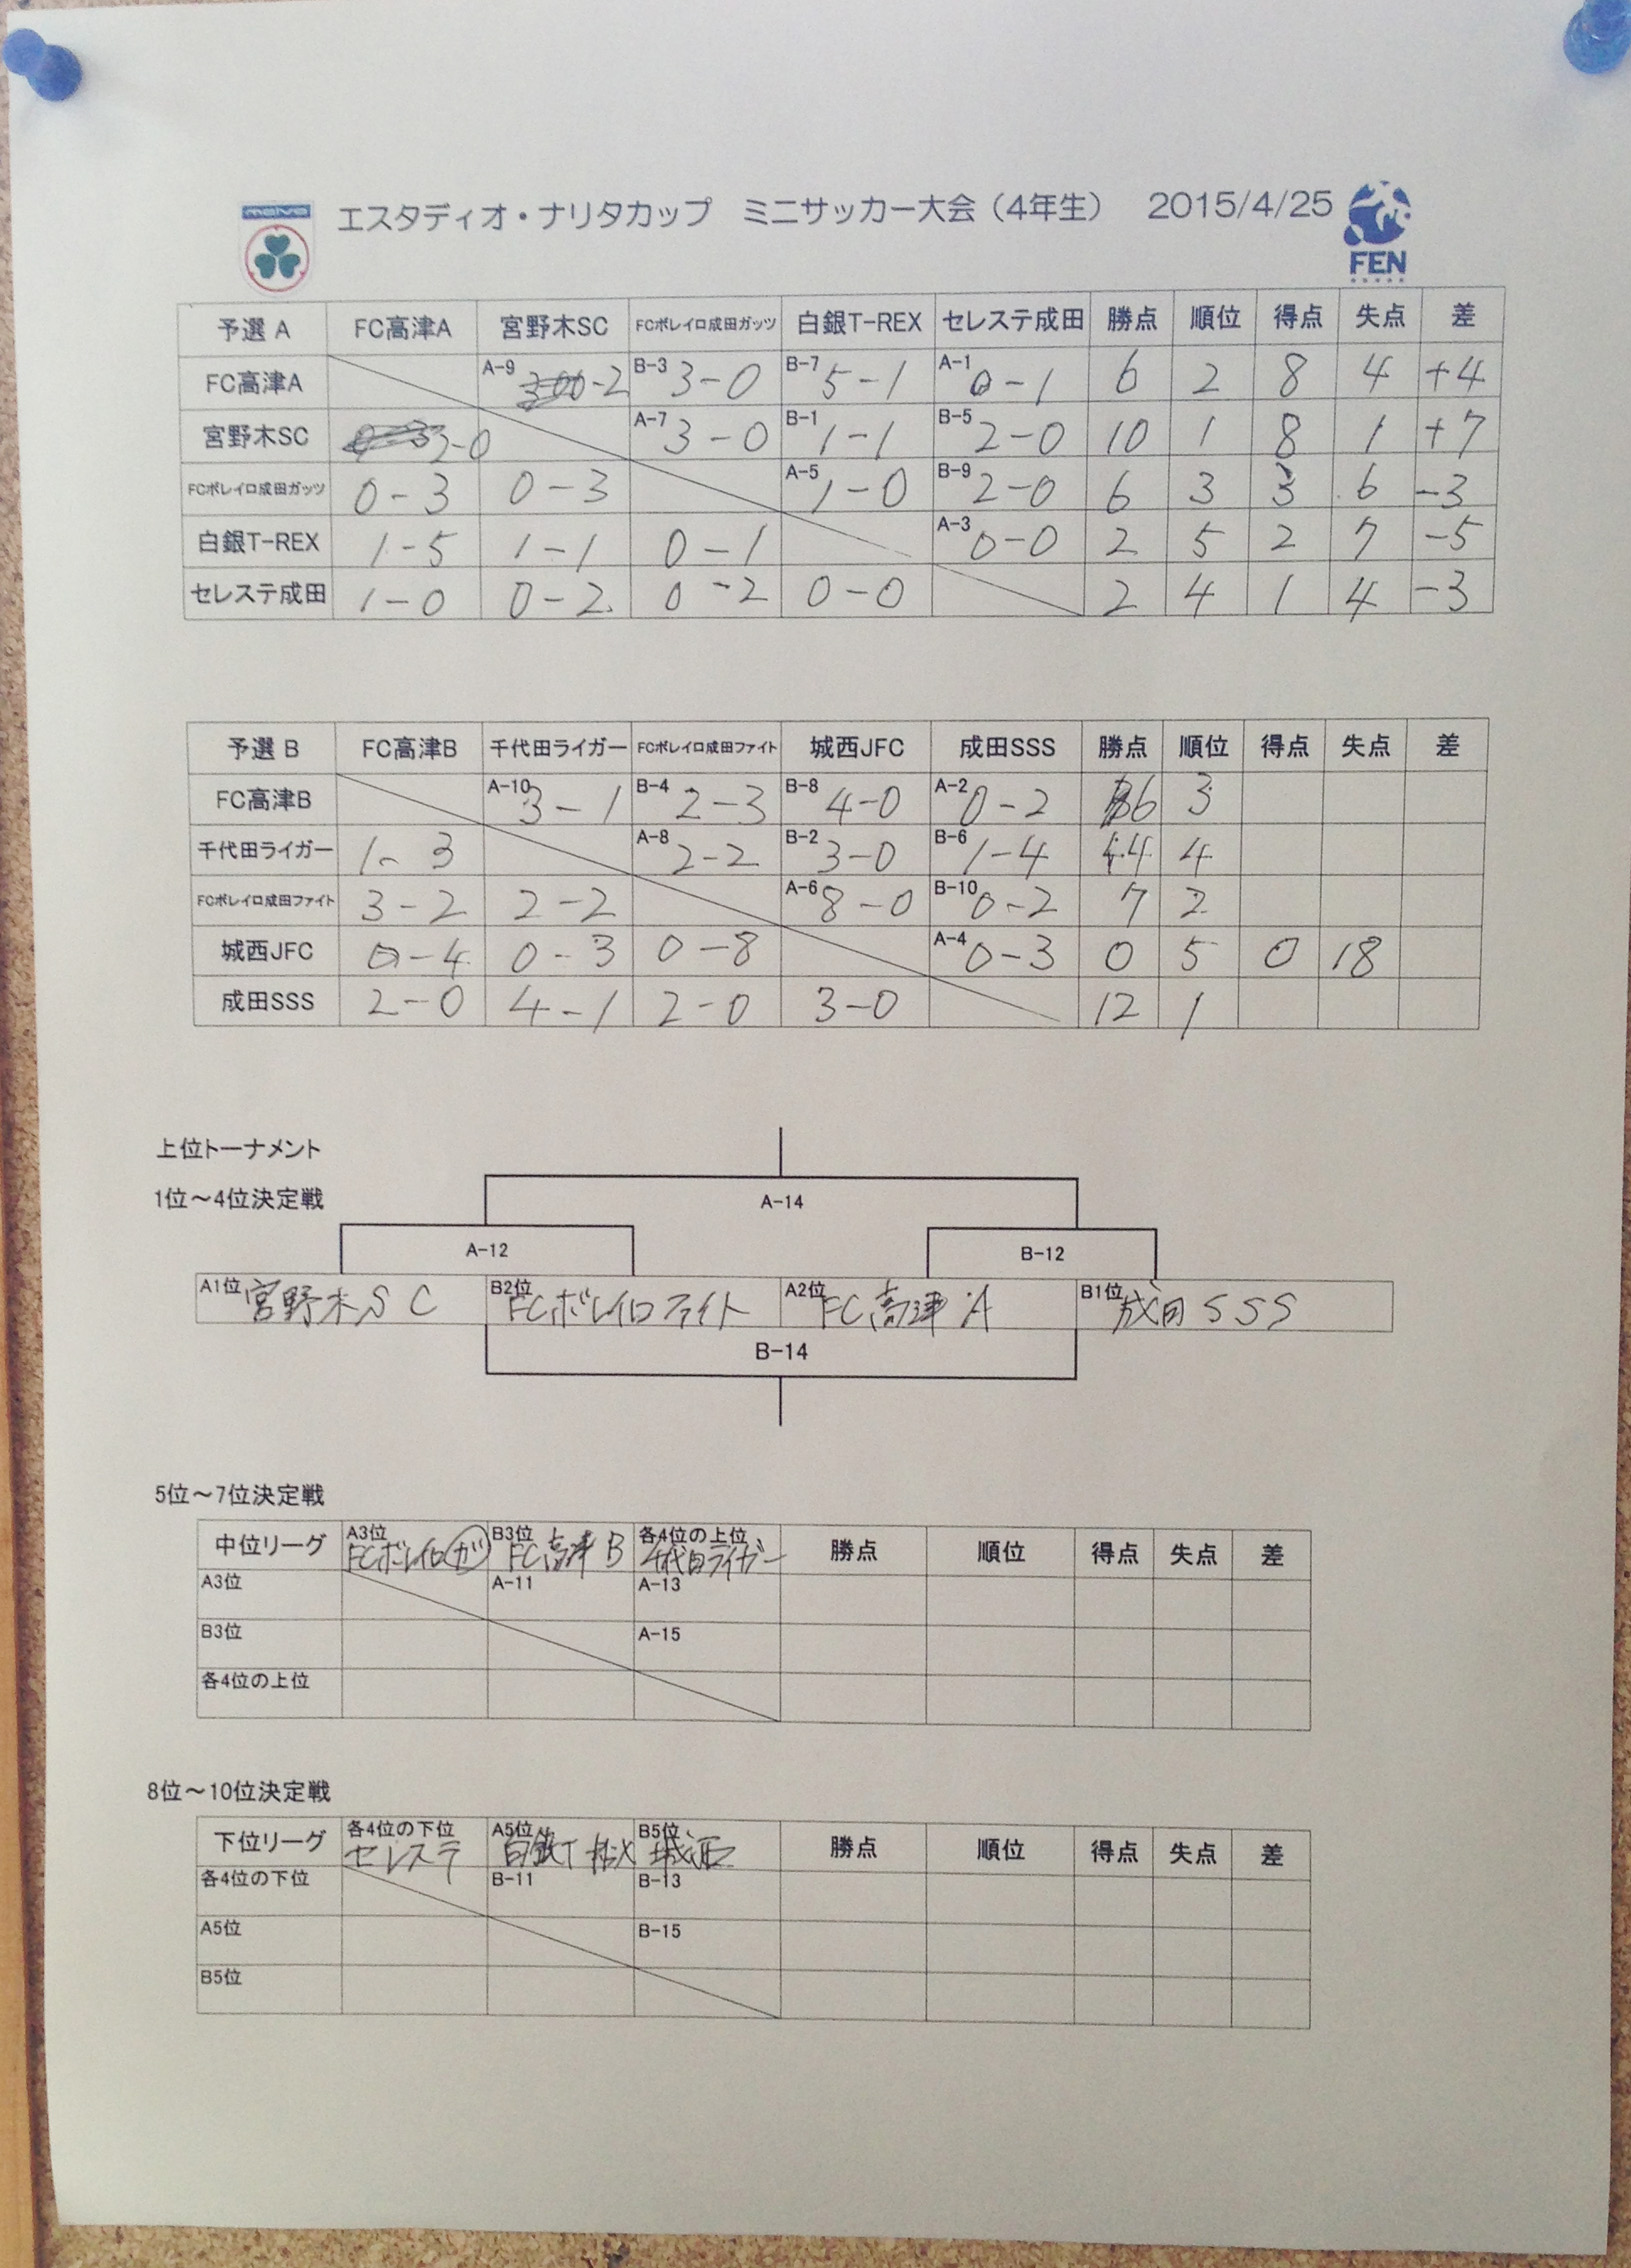 エスタディオ・ナリタカップ ミニサッカー大会（4年生） 2015/4/25
FEN
予選 A FC高津A 宮野木SC FCボレイロ成田ガッツ 白銀T-REX セレステ成田 勝点 順位 得点 失点 差
FC高津A A-9 0-2 B-3 3-0 B-7 5-1 A-1 0-1 6 2 8 4 +4
宮野木SC 2-0 A-7 3-0 B-1 1-1 B-5 2-0 10 1 8 1 +7
FCボレイロ成田ガッツ 0-3 0-3 A-5 1-0 B-9 2-0 6 3 3 6 -3
白銀T-REX 1-5 1-1 0-1 A-3 0-0 2 5 2 7 -5
セレステ成田 1-0 0-2 0-2 0-0 2 4 1 4 -3
予選 B FC高津B 千代田ライガー FCボレイロ成田ファイト 城西JFC 成田SSS 勝点 順位 得点 失点 差
FC高津B A-10 3-1 B-4 2-3 B-8 4-0 A-2 0-2 6 3
千代田ライガー 1-3 A-8 2-2 B-2 3-0 B-6 1-4 4 4
FCボレイロ成田ファイト 3-2 2-2 A-6 8-0 B-10 0-2 7 2
城西JFC 0-4 0-3 0-8 A-4 0-3 0 5 0 18
成田SSS 2-0 4-1 2-0 3-0 12 1
上位トーナメント
1位～4位決定戦
A-14
A-12 B-12
A1位 宮野木SC B2位 FCボレイロファイト A2位 FC高津A B1位 成田SSS
B-14
5位～7位決定戦
中位リーグ A3位 FCボレイロガ B3位 FC高津B 各4位の上位 千代田ライガー 勝点 順位 得点 失点 差
A3位 A-11 A-13
B3位 A-15
各4位の上位
8位～10位決定戦
下位リーグ 各4位の下位 セレステ A5位 白銀T-REX B5位 城西 勝点 順位 得点 失点 差
各4位の下位 B-11 B-13
A5位 B-15
B5位